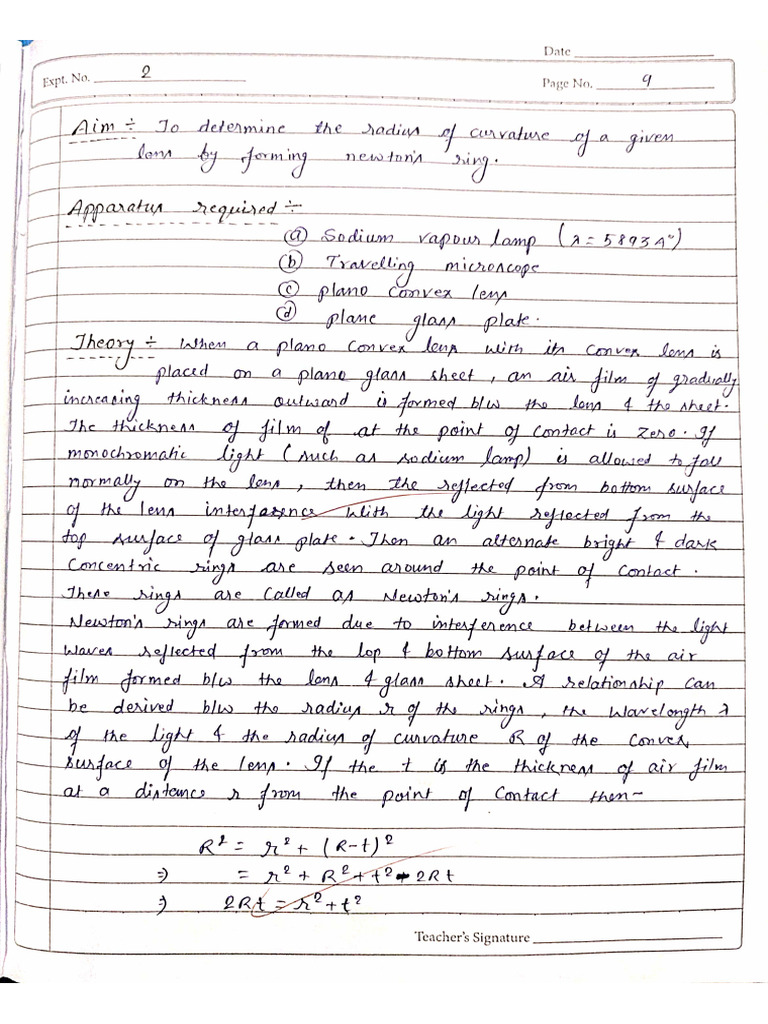 Date
Expt. No. 2
Page No. 9
Aim ÷ To determine the radius of curvature of a given
lens by forming newton's ring.
Apparatus required ÷
(a) Sodium vapour lamp (λ = 5893 A°)
(b) Travelling microscope
(c) plano convex lens
(d) plane glass plate.
Theory ÷ When a plano convex lens with its convex lens is
placed on a plano glass sheet, an air film of gradually
increasing thickness outward is formed b/w the lens & the sheet.
The thickness of film of at the point of contact is zero. If
monochromatic light (such as sodium lamp) is allowed to fall
normally on the lens, then the reflected from bottom surface
of the lens interfarence with the light reflected from the
top surface of glass plate. Then an alternate bright & dark
concentric rings are seen around the point of contact.
These rings are called as Newton's rings.
Newton's rings are formed due to interference between the light
waves reflected from the top & bottom surface of the air
film formed b/w the lens & glass sheet. A relationship can
be derived b/w the radius r of the rings, the wavelength λ
of the light & the radius of curvature R of the convex
surface of the lens. If the t is the thickness of air film
at a distance r from the point of contact then-
R² = r² + (R-t)²
⇒ = r² + R² + t² - 2Rt
⇒ 2Rt = r² + t²
Teacher's Signature